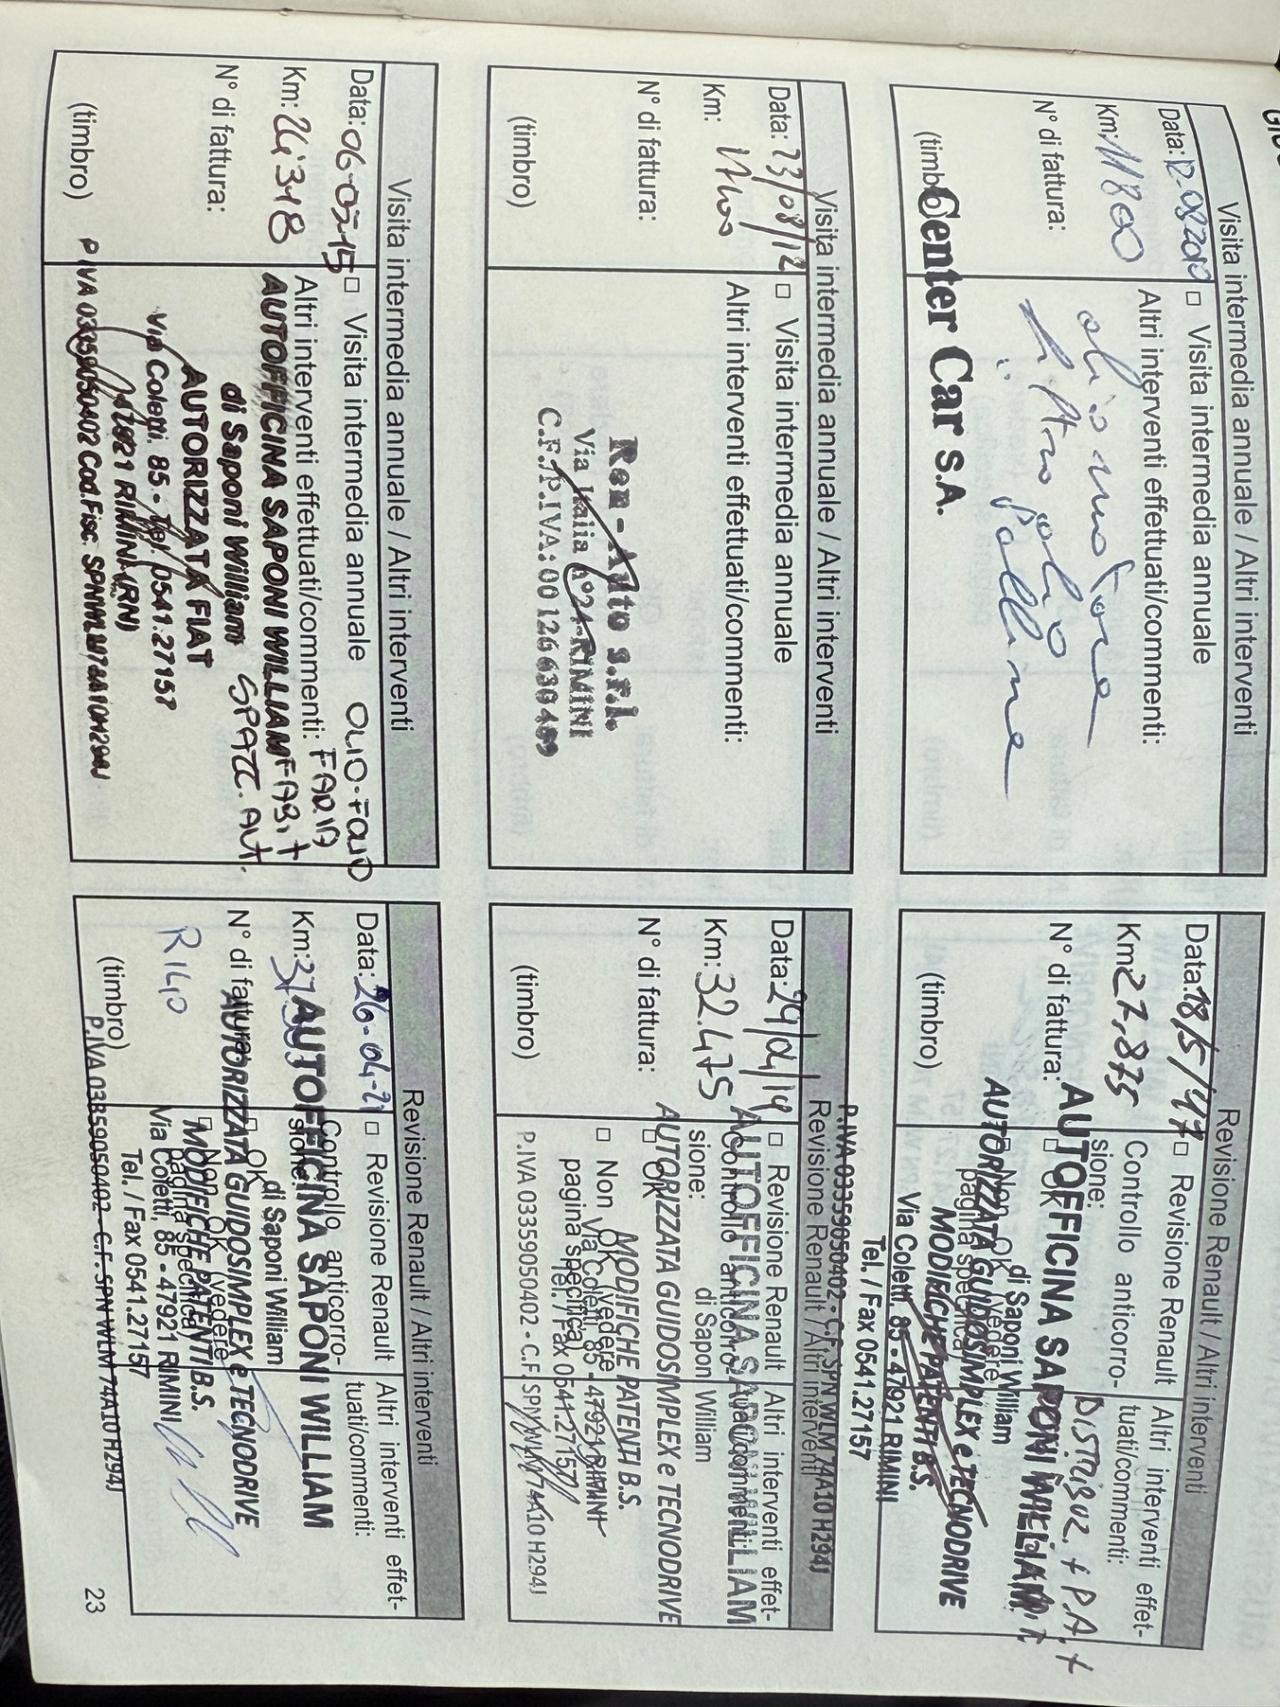 Visita intermedia annuale / Altri interventi
Data: 12-08 2010
□ Visita intermedia annuale
Km: 11800
Altri interventi effettuati/commenti:
olio motore
N° di fattura:
filtro olio
polline
(timbro)
Center Car S.A.
Visita intermedia annuale / Altri interventi
Data: 23/08/12
□ Visita intermedia annuale
Km:
Altri interventi effettuati/commenti:
N° di fattura:
(timbro)
Ren - Auto s.r.l.
Via Italia RIMINI
C.F./P.IVA: 00 126 630 409
Visita intermedia annuale / Altri interventi
Data: 06-05-15
□ Visita intermedia annuale
OLIO-FOLIO
Km: 24318
Altri interventi effettuati/commenti: F ARIA
AUTOFFICINA SAPONI WILLIAM
F AB. +
N° di fattura:
di Saponi William
SPAZZ. ANT.
AUTORIZZATA FIAT
(timbro)
Via Coletti, 85 - Tel. 0541.27157
47921 RIMINI (RN)
P IVA 03359050402 Cod.Fisc. SPNWLM74A10H294J
Revisione Renault / Altri interventi
Data: 18/5/17
□ Revisione Renault
Altri interventi effet-
tuati/commenti:
Km 27.875
Controllo anticorro-
sione:
DISTRIBUZ. + P.A. +
N° di fattura:
□ OK
AUTOFFICINA SAPONI WILLIAM
di Saponi William
□ Non OK vedere
pagina specifica
AUTORIZZATA GUIDOSIMPLEX e TECNODRIVE
MODIFICHE PATENTI B.S.
(timbro)
Via Coletti, 85 - 47921 RIMINI
Tel. / Fax 0541.27157
P.IVA 03359050402 - C.F. SPN WLM 74A10 H294J
Revisione Renault / Altri interventi
Data: 29/04/19
□ Revisione Renault
Altri interventi effet-
tuati/commenti:
Km: 32.475
Controllo anticorro-
sione:
AUTOFFICINA SAPONI WILLIAM
di Saponi William
N° di fattura:
□ OK
AUTORIZZATA GUIDOSIMPLEX e TECNODRIVE
MODIFICHE PATENTI B.S.
□ Non OK vedere
pagina specifica
Via Coletti, 85 - 47921 RIMINI
Tel. / Fax 0541.27157
(timbro)
P.IVA 03359050402 - C.F. SPN WLM 74A10 H294J
Revisione Renault / Altri interventi
Data: 26-04-21
□ Revisione Renault
Altri interventi effet-
tuati/commenti:
Km:
Controllo anticorro-
sione:
AUTOFFICINA SAPONI WILLIAM
di Saponi William
N° di fattura:
□ OK
AUTORIZZATA GUIDOSIMPLEX e TECNODRIVE
□ Non OK vedere
pagina specifica
MODIFICHE PATENTI B.S.
Via Coletti, 85 - 47921 RIMINI
(timbro)
Tel. / Fax 0541.27157
P.IVA 03359050402 - C.F. SPN WLM 74A10 H294J
23